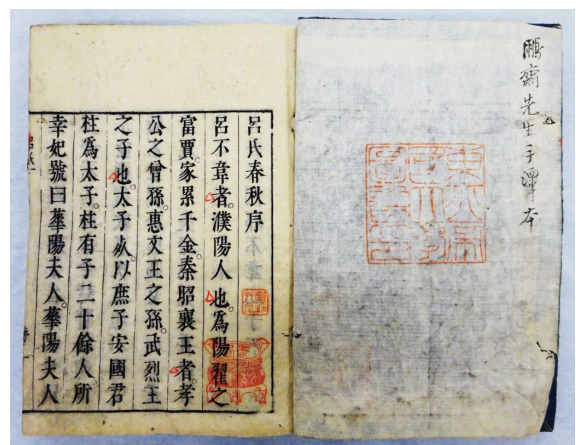 鵬齋先生手澤本
呂氏春秋序
呂不韋者。濮陽人也。爲陽翟之
富賈。家累千金。秦昭襄王者孝
公之曾孫。惠文王之孫。武烈王
之子也。太子死以庶子安國君
柱爲太子。柱有子二十餘人所
幸妃號曰華陽夫人。華陽夫人